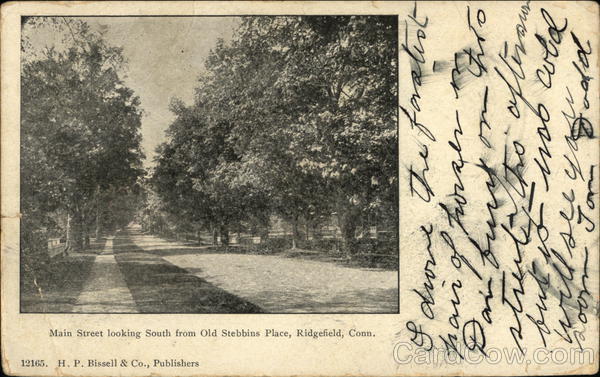 Main Street looking South from Old Stebbins Place, Ridgefield, Conn.
12165. H. P. Bissell & Co., Publishers
I drove the fastest
pair of horses in
Danbury on two
streets this afternoon
but was most cold
will see you
soon Tom Todd
CardCow.com